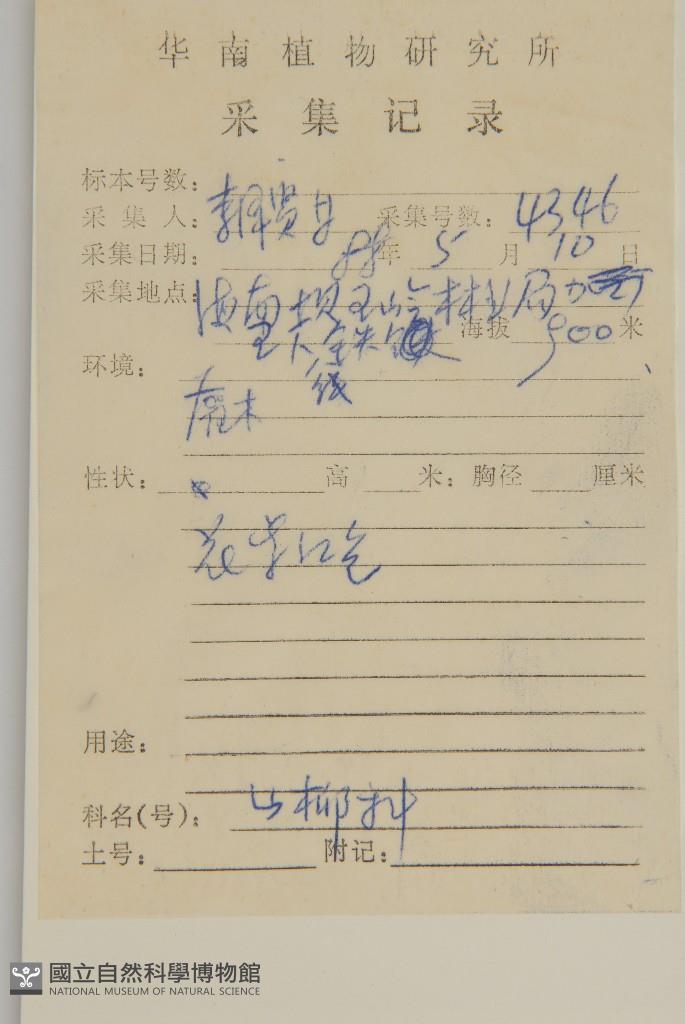 华南植物研究所
采集记录
标本号数：
采集人： 采集号数：4346
采集日期： 年 5 月 10 日
采集地点： 海南 林业局
海拔 900 米
环境： 线
灌木
性状： 高 米：胸径 厘米
花 红色
用途：
科名(号)：山柳科
土号： 附记：
國立自然科學博物館
NATIONAL MUSEUM OF NATURAL SCIENCE